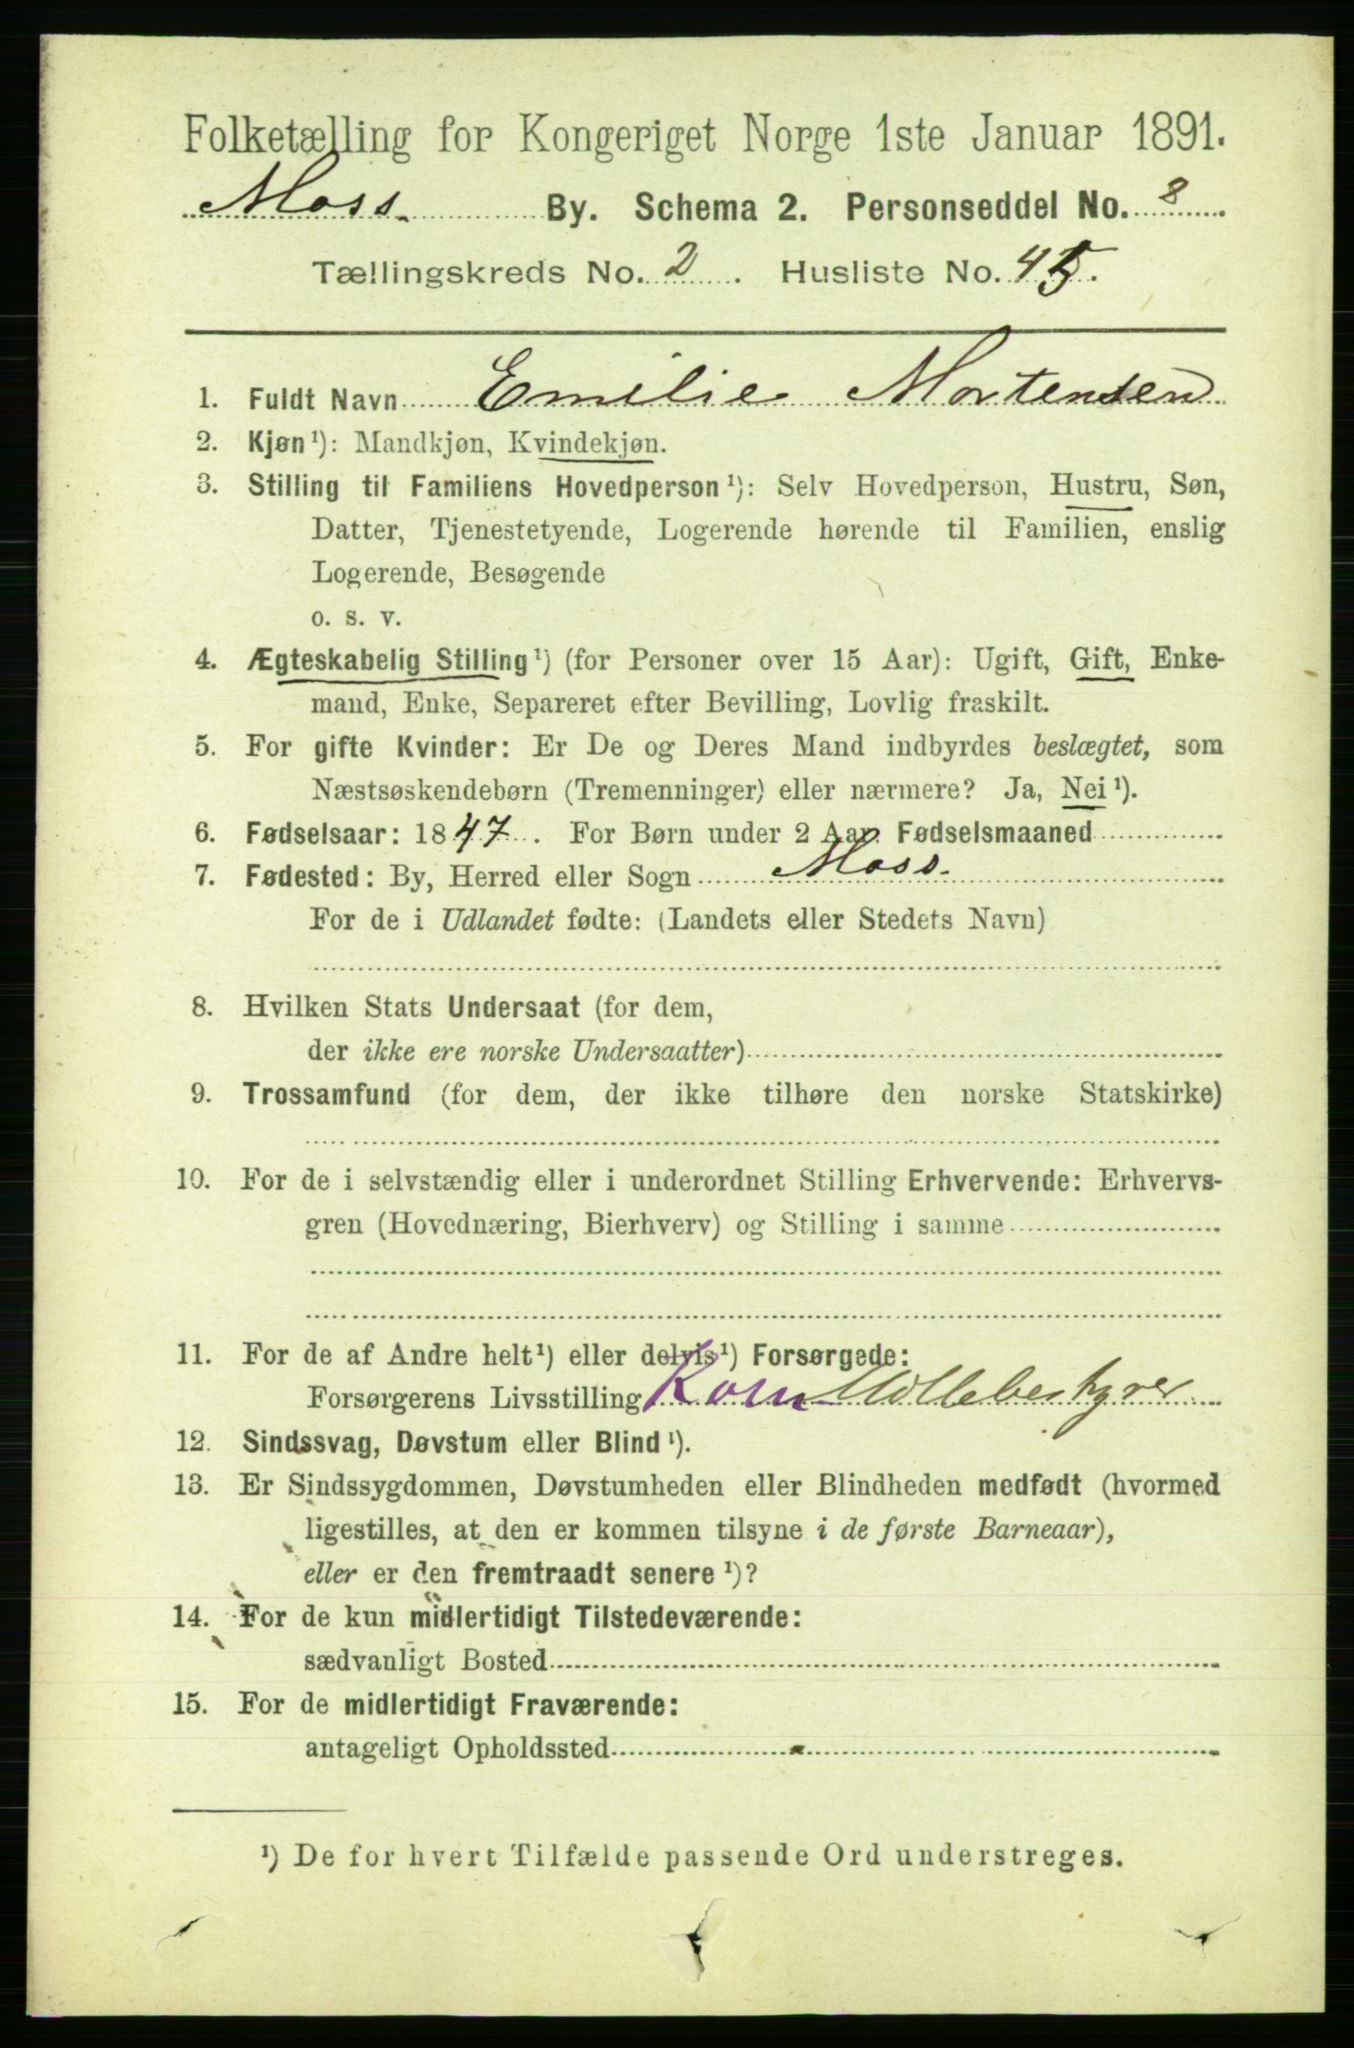 Folketælling for Kongeriget Norge 1ste Januar 1891.
Moss. By. Schema 2. Personseddel No. 8
Tællingskreds No. 2. Husliste No. 45.
1. Fuldt Navn Emilie Mortensen
2. Kjøn¹): Mandkjøn, Kvindekjøn.
3. Stilling til Familiens Hovedperson¹): Selv Hovedperson, Hustru, Søn,
Datter, Tjenestetyende, Logerende hørende til Familien, enslig
Logerende, Besøgende
o. s. v.
4. Ægteskabelig Stilling¹) (for Personer over 15 Aar): Ugift, Gift, Enke-
mand, Enke, Separeret efter Bevilling, Lovlig fraskilt.
5. For gifte Kvinder: Er De og Deres Mand indbyrdes beslægtet, som
Næstsøskendebørn (Tremenninger) eller nærmere? Ja, Nei¹).
6. Fødselsaar: 1847. For Børn under 2 Aar Fødselsmaaned
7. Fødested: By, Herred eller Sogn Moss.
For de i Udlandet fødte: (Landets eller Stedets Navn)
8. Hvilken Stats Undersaat (for dem,
der ikke ere norske Undersaatter)
9. Trossamfund (for dem, der ikke tilhøre den norske Statskirke)
10. For de i selvstændig eller i underordnet Stilling Erhvervende: Erhvervs-
gren (Hovednæring, Bierhverv) og Stilling i samme
11. For de af Andre helt¹) eller delvis¹) Forsørgede:
Forsørgerens Livsstilling Korn Møllebestyrer
12. Sindssvag, Døvstum eller Blind¹).
13. Er Sindssygdommen, Døvstumheden eller Blindheden medfødt (hvormed
ligestilles, at den er kommen tilsyne i de første Barneaar),
eller er den fremtraadt senere¹)?
14. For de kun midlertidigt Tilstedeværende:
sædvanligt Bosted
15. For de midlertidigt Fraværende:
antageligt Opholdssted
¹) De for hvert Tilfælde passende Ord understreges.